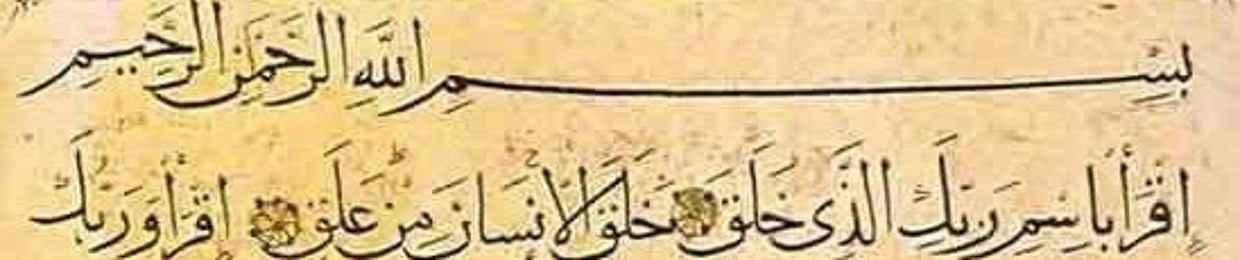 بِسْمِ اللَّهِ الرَّحْمَٰنِ الرَّحِيمِ
اِقْرَأْ بِاسْمِ رَبِّكَ الَّذِى خَلَقَ خَلَقَ الْاِنْسَانَ مِنْ عَلَقٍ اِقْرَأْ وَرَبُّكَ